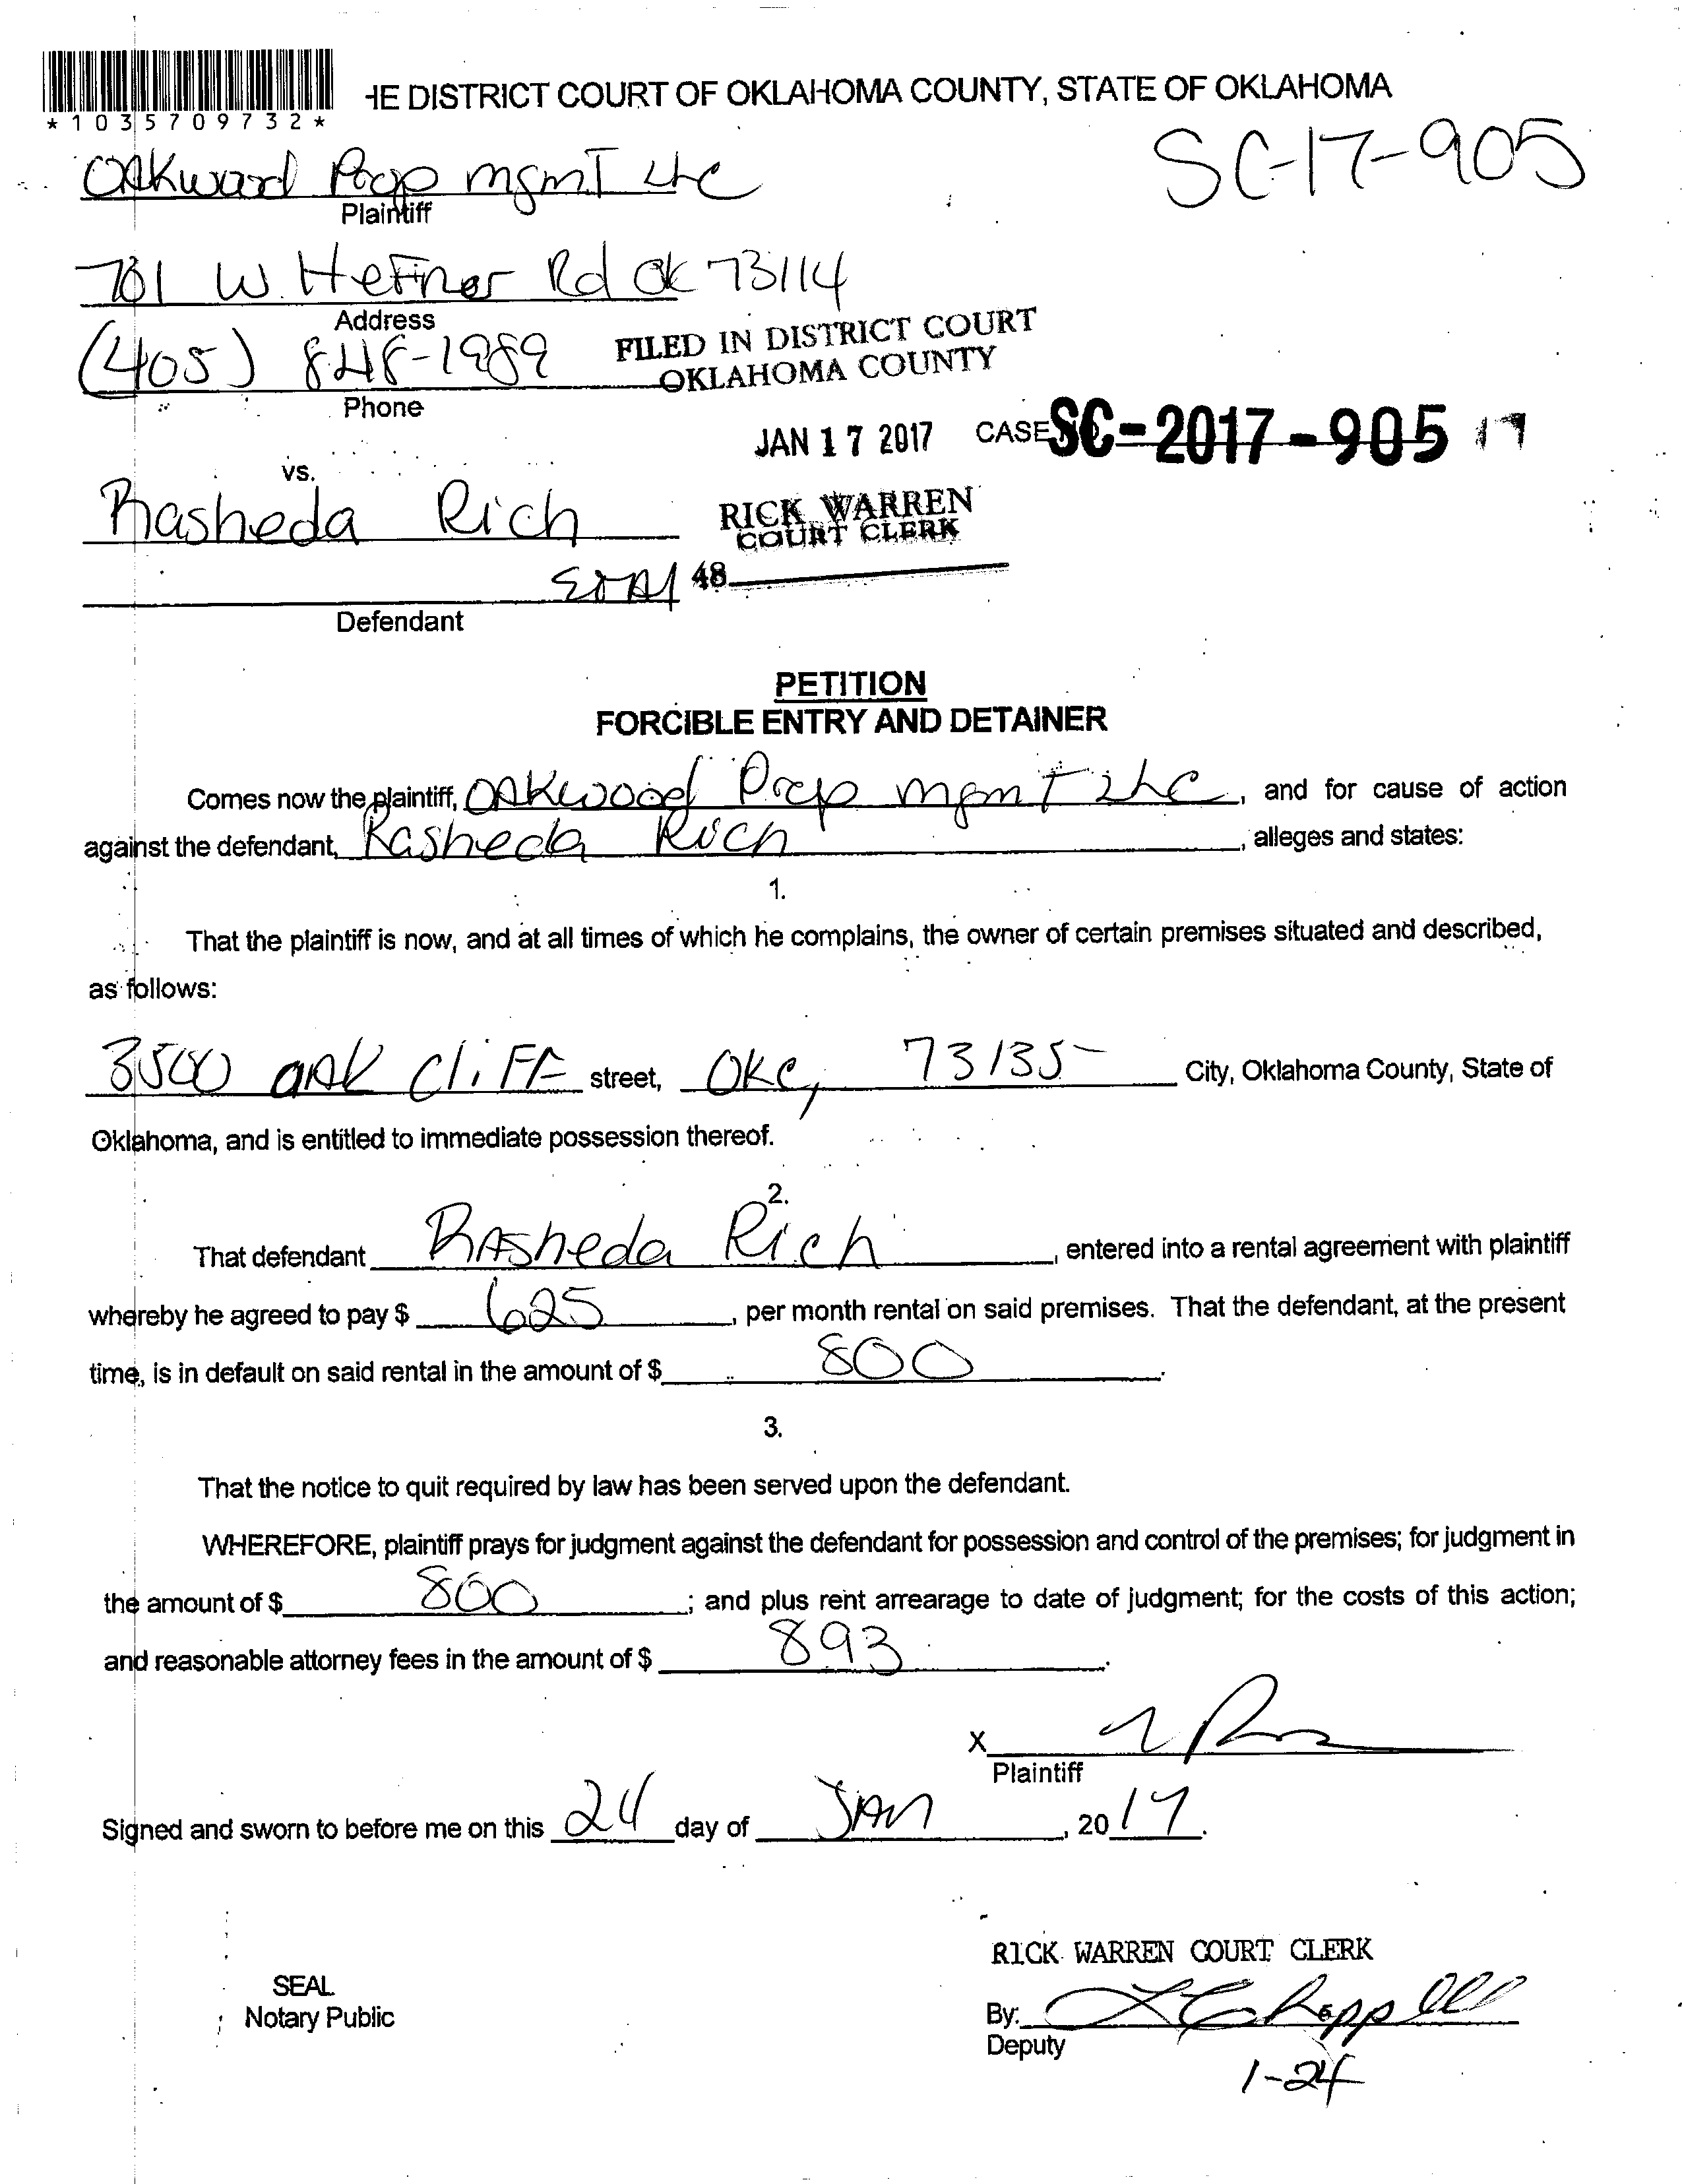 HE DISTRICT COURT OF OKLAHOMA COUNTY, STATE OF OKLAHOMA
*1035709732*
SC-17-905
Oakward Prop mgmT LLC
Plaintiff
701 W. Hefner Rd OK 73114
Address
(405) 848-1989
Phone
FILED IN DISTRICT COURT
OKLAHOMA COUNTY
JAN 17 2017
CASE SC-2017-905
vs.
Rasheda Rich
RICK WARREN
COURT CLERK
48
Et Al
Defendant
PETITION
FORCIBLE ENTRY AND DETAINER
Comes now the plaintiff, OAKwood Prop mgmT LLC, and for cause of action
against the defendant, Rasheda Rich, alleges and states:
1.
That the plaintiff is now, and at all times of which he complains, the owner of certain premises situated and described,
as follows:
3500 oak Cliff street, OKC, 73135 City, Oklahoma County, State of
Oklahoma, and is entitled to immediate possession thereof.
2.
That defendant RAsheda Rich, entered into a rental agreement with plaintiff
whereby he agreed to pay $ 625, per month rental on said premises. That the defendant, at the present
time, is in default on said rental in the amount of $ 800.
3.
That the notice to quit required by law has been served upon the defendant.
WHEREFORE, plaintiff prays for judgment against the defendant for possession and control of the premises; for judgment in
the amount of $ 800; and plus rent arrearage to date of judgment; for the costs of this action;
and reasonable attorney fees in the amount of $ 893.
X
Plaintiff
Signed and sworn to before me on this 24 day of JAN, 2017.
RICK WARREN COURT CLERK
SEAL
Notary Public
By: L Chappell
Deputy
1-24